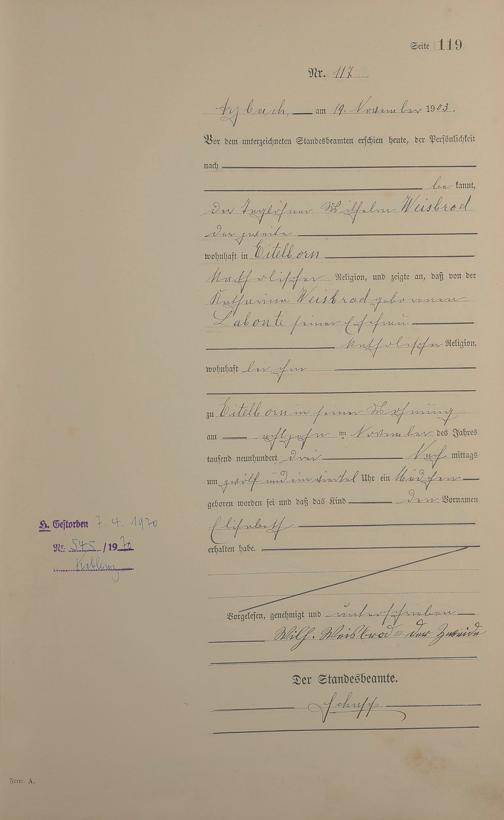 Seite 119
Nr. 117
Arzbach, am 19. November 1903.
Vor dem unterzeichneten Standesbeamten erschien heute, der Persönlichkeit
nach
be kannt,
der Taglöhner Wilhelm Weisbrod
der zweite
wohnhaft in Eitelborn
katholischer Religion, und zeigte an, daß von der
Katharina Weisbrod geborenen
Labonte seiner Ehefrau
katholischer Religion,
wohnhaft bei ihm
zu Eitelborn in seiner Wohnung
am achtzehn ten November des Jahres
tausend neunhundert drei Nach mittags
um zwölf und einviertel Uhr ein Mädchen
geboren worden sei und daß das Kind den Vornamen
Elisabeth
erhalten habe.
H. Gestorben 7. 4. 1970
Nr. 545 / 1970
Koblenz
Vorgelesen, genehmigt und unterschrieben
Wilh. Weisbrod der Zweide
Der Standesbeamte.
Schupp
Form. A.